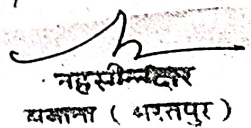 तहसीलदार
बयाना ( भरतपुर )